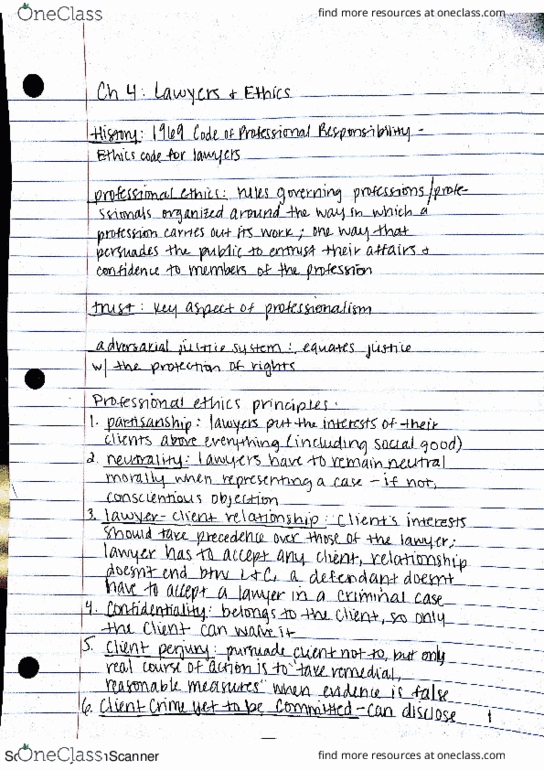 OneClass
find more resources at oneclass.com
Ch 4: Lawyers & Ethics
History: 1969 Code of Professional Responsibility -
Ethics code for lawyers
professional ethics: rules governing professions/profe-
ssionals organized around the way in which a
profession carries out its work; one way that
persuades the public to entrust their affairs &
confidence to members of the profession
trust: key aspect of professionalism
adversarial justice system: equates justice
w/ the protection of rights
Professional ethics principles:
1. partisanship: lawyers put the interests of their
clients above everything (including social good)
2. neutrality: lawyers have to remain neutral
morally when representing a case - if not,
conscientious objection
3. lawyer-client relationship: client's interests
should take precedence over those of the lawyer;
lawyer has to accept any client, relationship
doesnt end btw L+C, a defendant doesnt
have to accept a lawyer in a criminal case
4. Confidentiality: belongs to the client, so only
the client can waive it
5. Client perjury: pursuade client not to, but only
real course of action is to "take remedial,
reasonable measures" when evidence is false
6. Client Crime yet to be Committed - can disclose
OneClass
Scanner
find more resources at oneclass.com